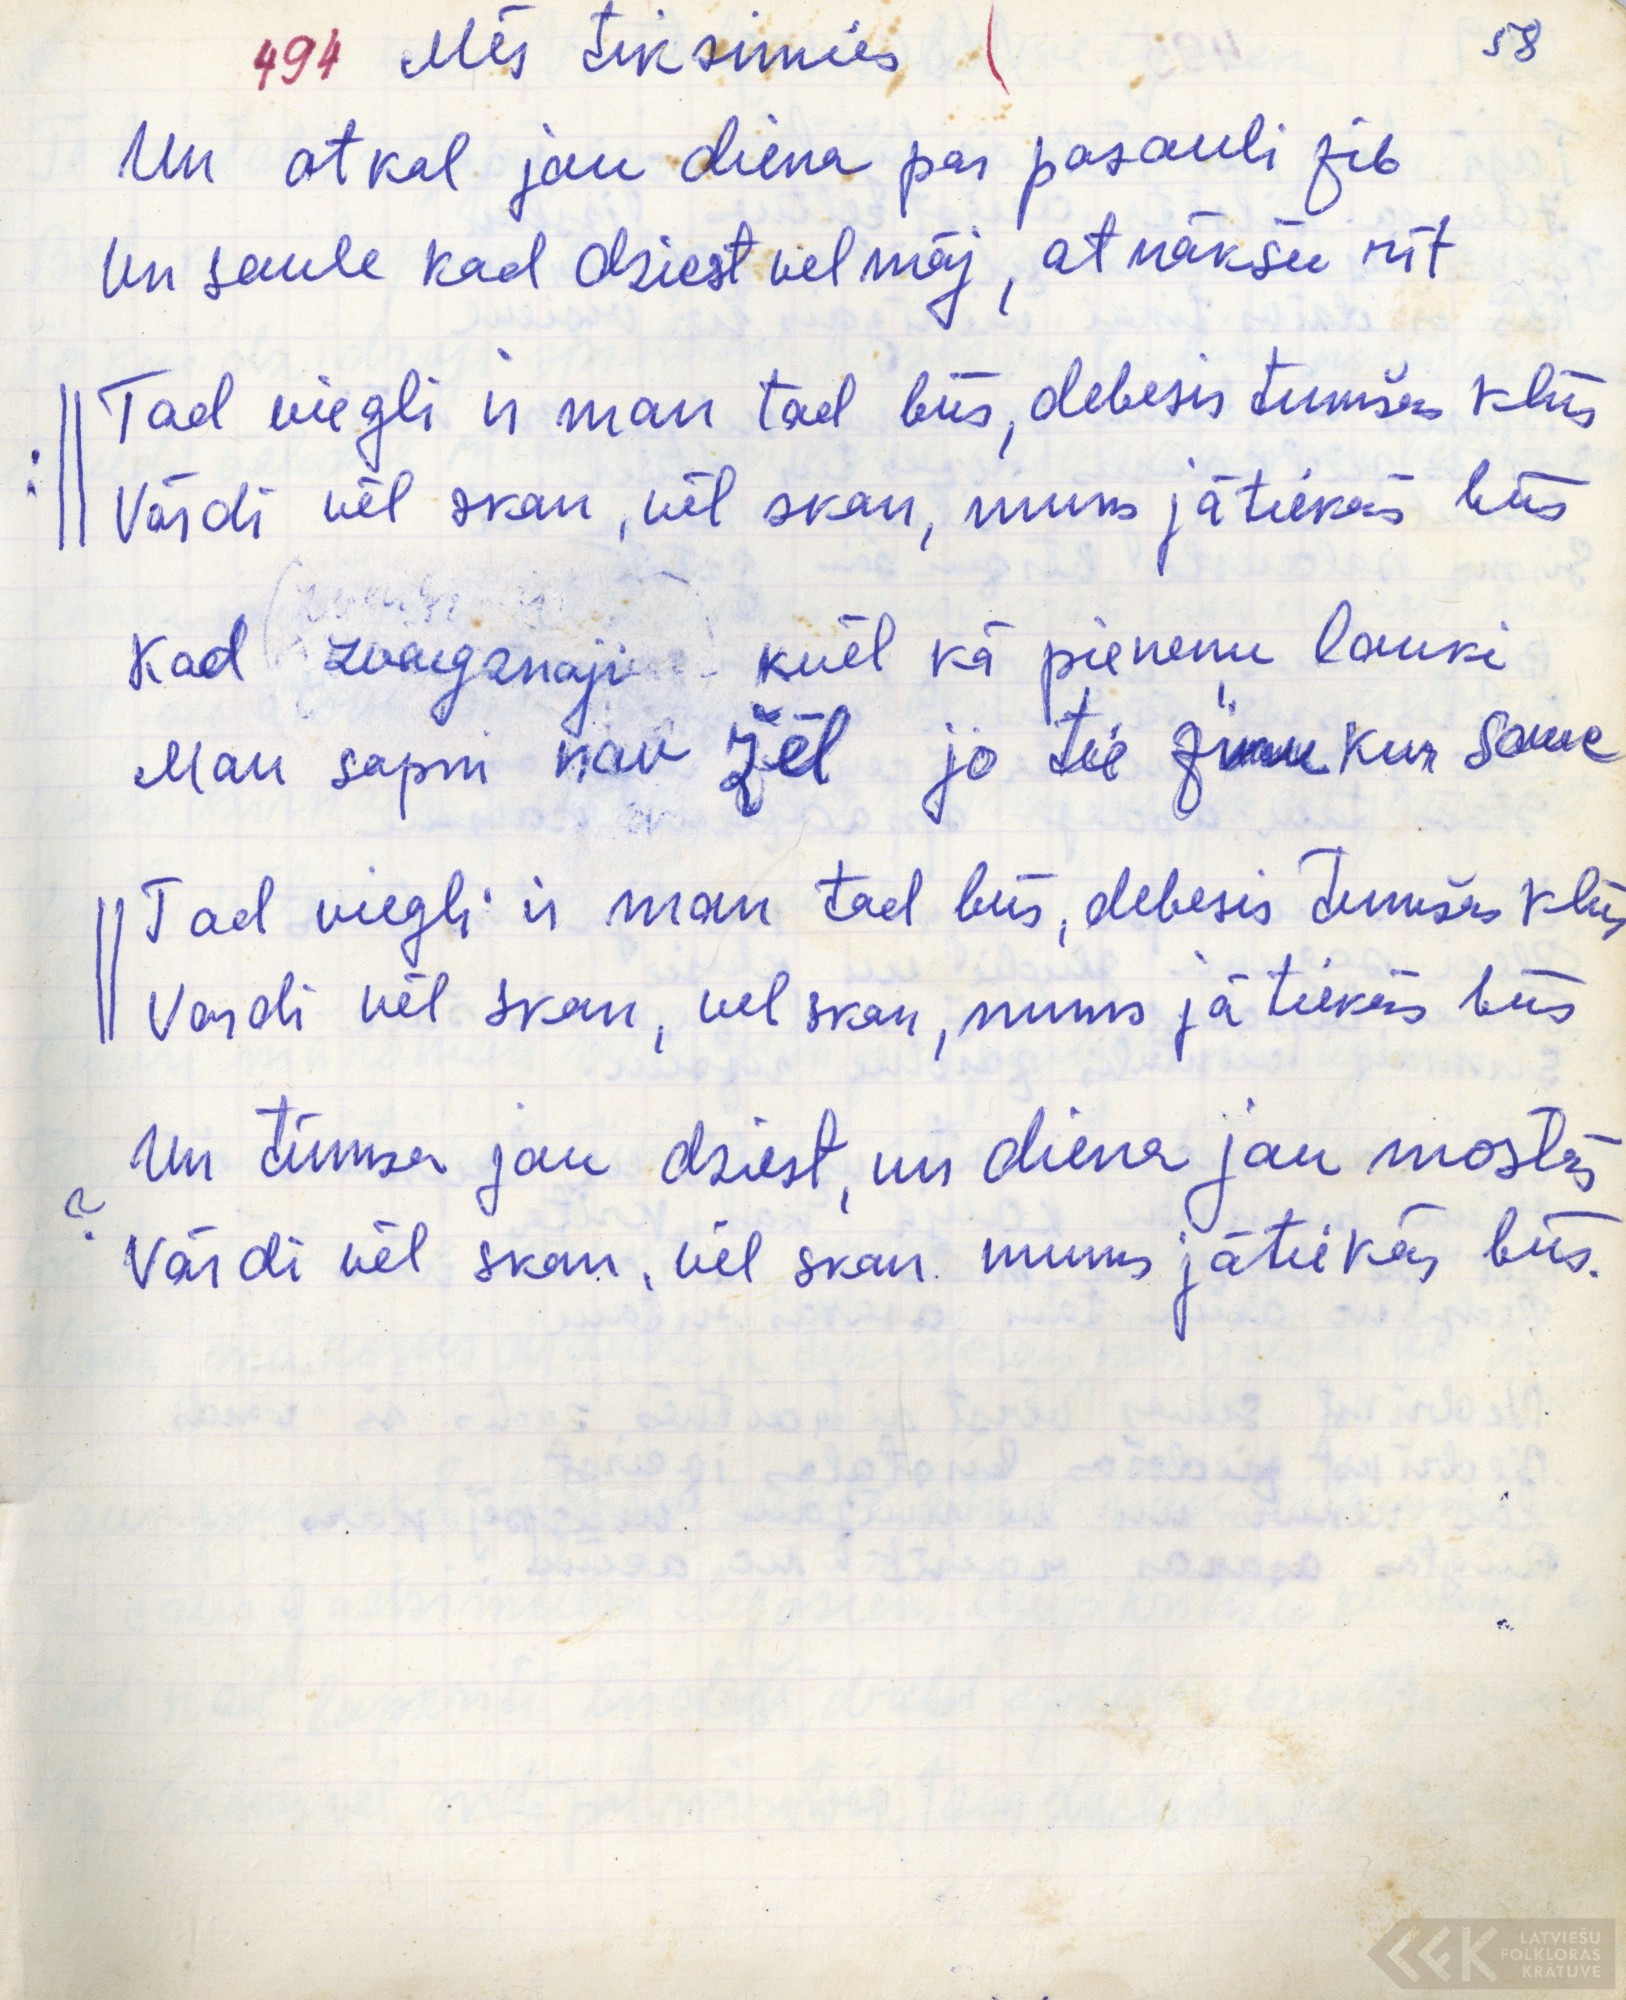 494 Mēs tiksimies ( 58
Un atkal jau diena par pasauli zib
Un saule kad dziest vel māj, atnākšu rīt
Tad viegli ir man tad būs, debesis tumšas klūs
:|| Vārdi vēl skan, vēl skan, mums jātiekās būs
Kad zvaigznaji kvēl kā pieneņu lauki
Man sapņi nav žēl jo tie kur
|| Tad viegli ir man tad būs, debesis tumšas klūs
Vardi vēl skan, vel skan, mums jātiekās būs
Un tūmsa jau dziest, un diena jau mostās
? Vārdi vēl skan, vēl skan. mums jātiekās būs.
LATVIEŠU
FOLKLORAS
KRĀTUVE